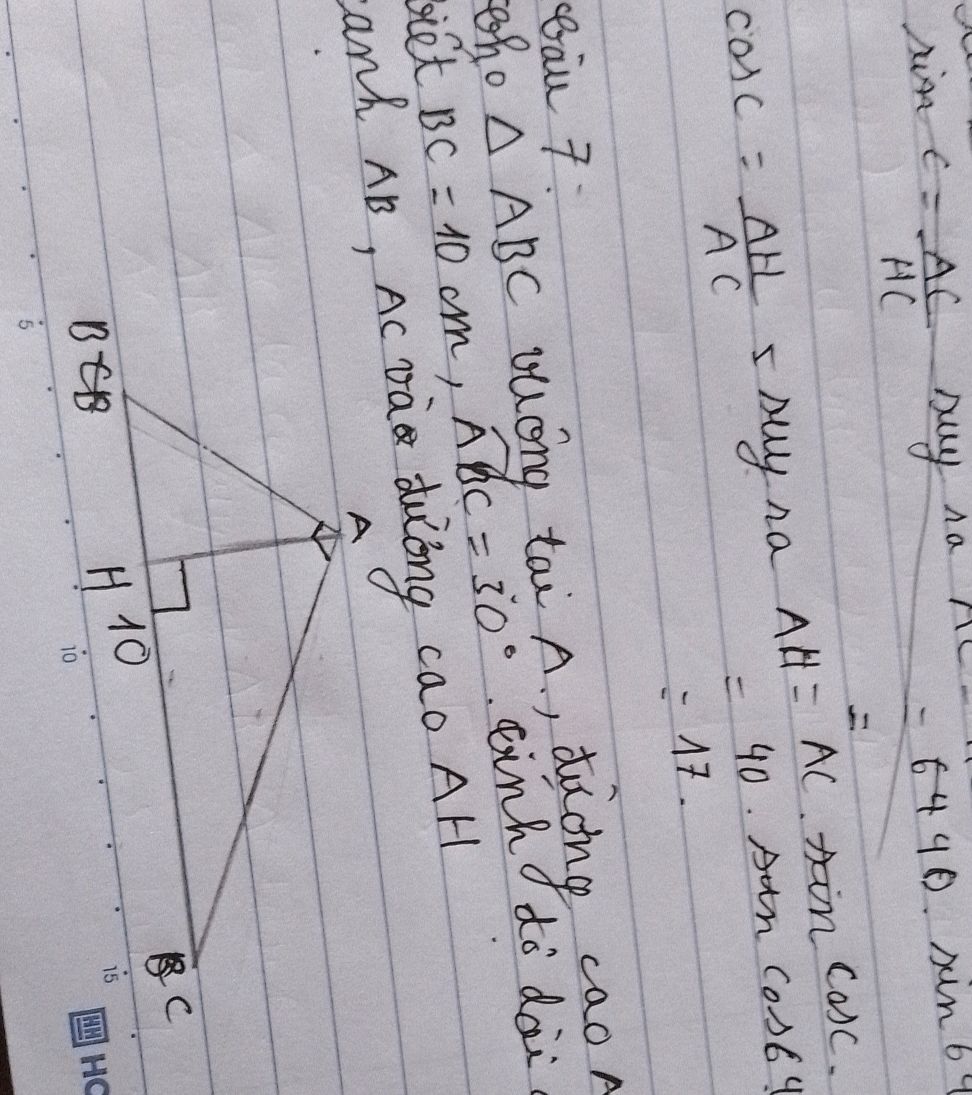 sin C = AC/HC suy ra AC
= 6440. sin 64
=
cos C = AH/AC suy ra AH = AC. cos C.
= 40. cos 64
= 17.
Câu 7.
cho Δ ABC vuông tai A, đường cao A
biết BC = 10 cm, ABC = 30°. tính độ dài
canh AB, AC và đường cao AH
A
B
H
10
C
5
10
15
HO